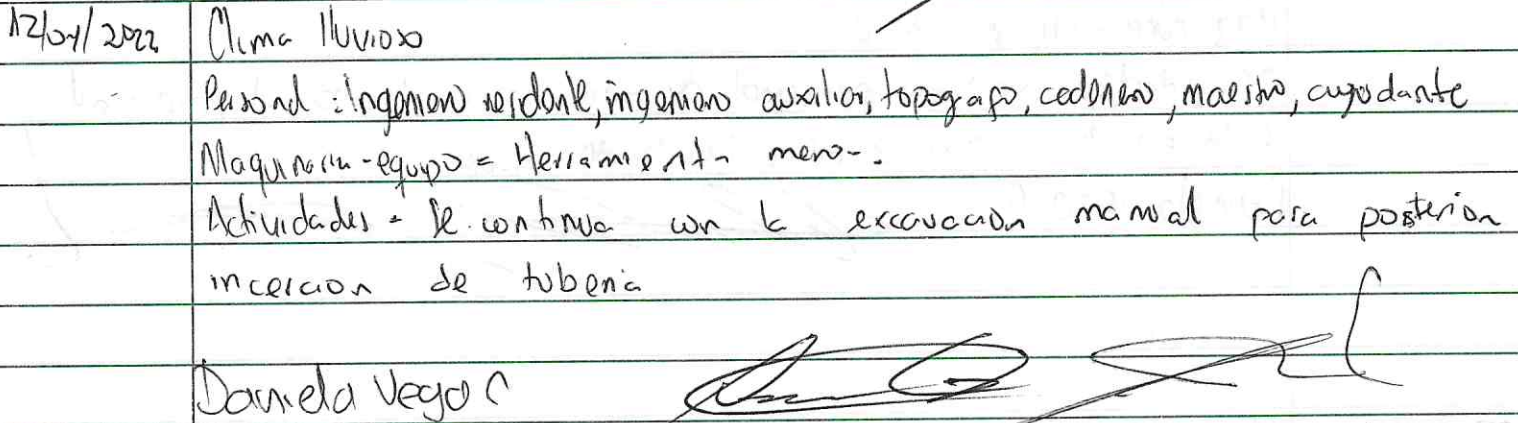 12/04/2022 Clima lluvioso
Personal : Ingeniero residente, ingeniero auxiliar, topografo, cadenero, maestro, ayudante
Maquinaria - equipo = Herramienta menor.
Actividades = Se continua con la excavacion manual para posterior
incercion de tuberia
Daniela Vega C